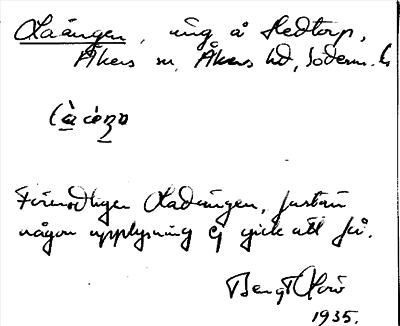 Laängen, äng å Hedtorp,
Åkers sn, Åkers hd, Söderm. l.
Förmodligen Ladängen, fastän
någon upplysning ej gick att få.
Bengt
1935.